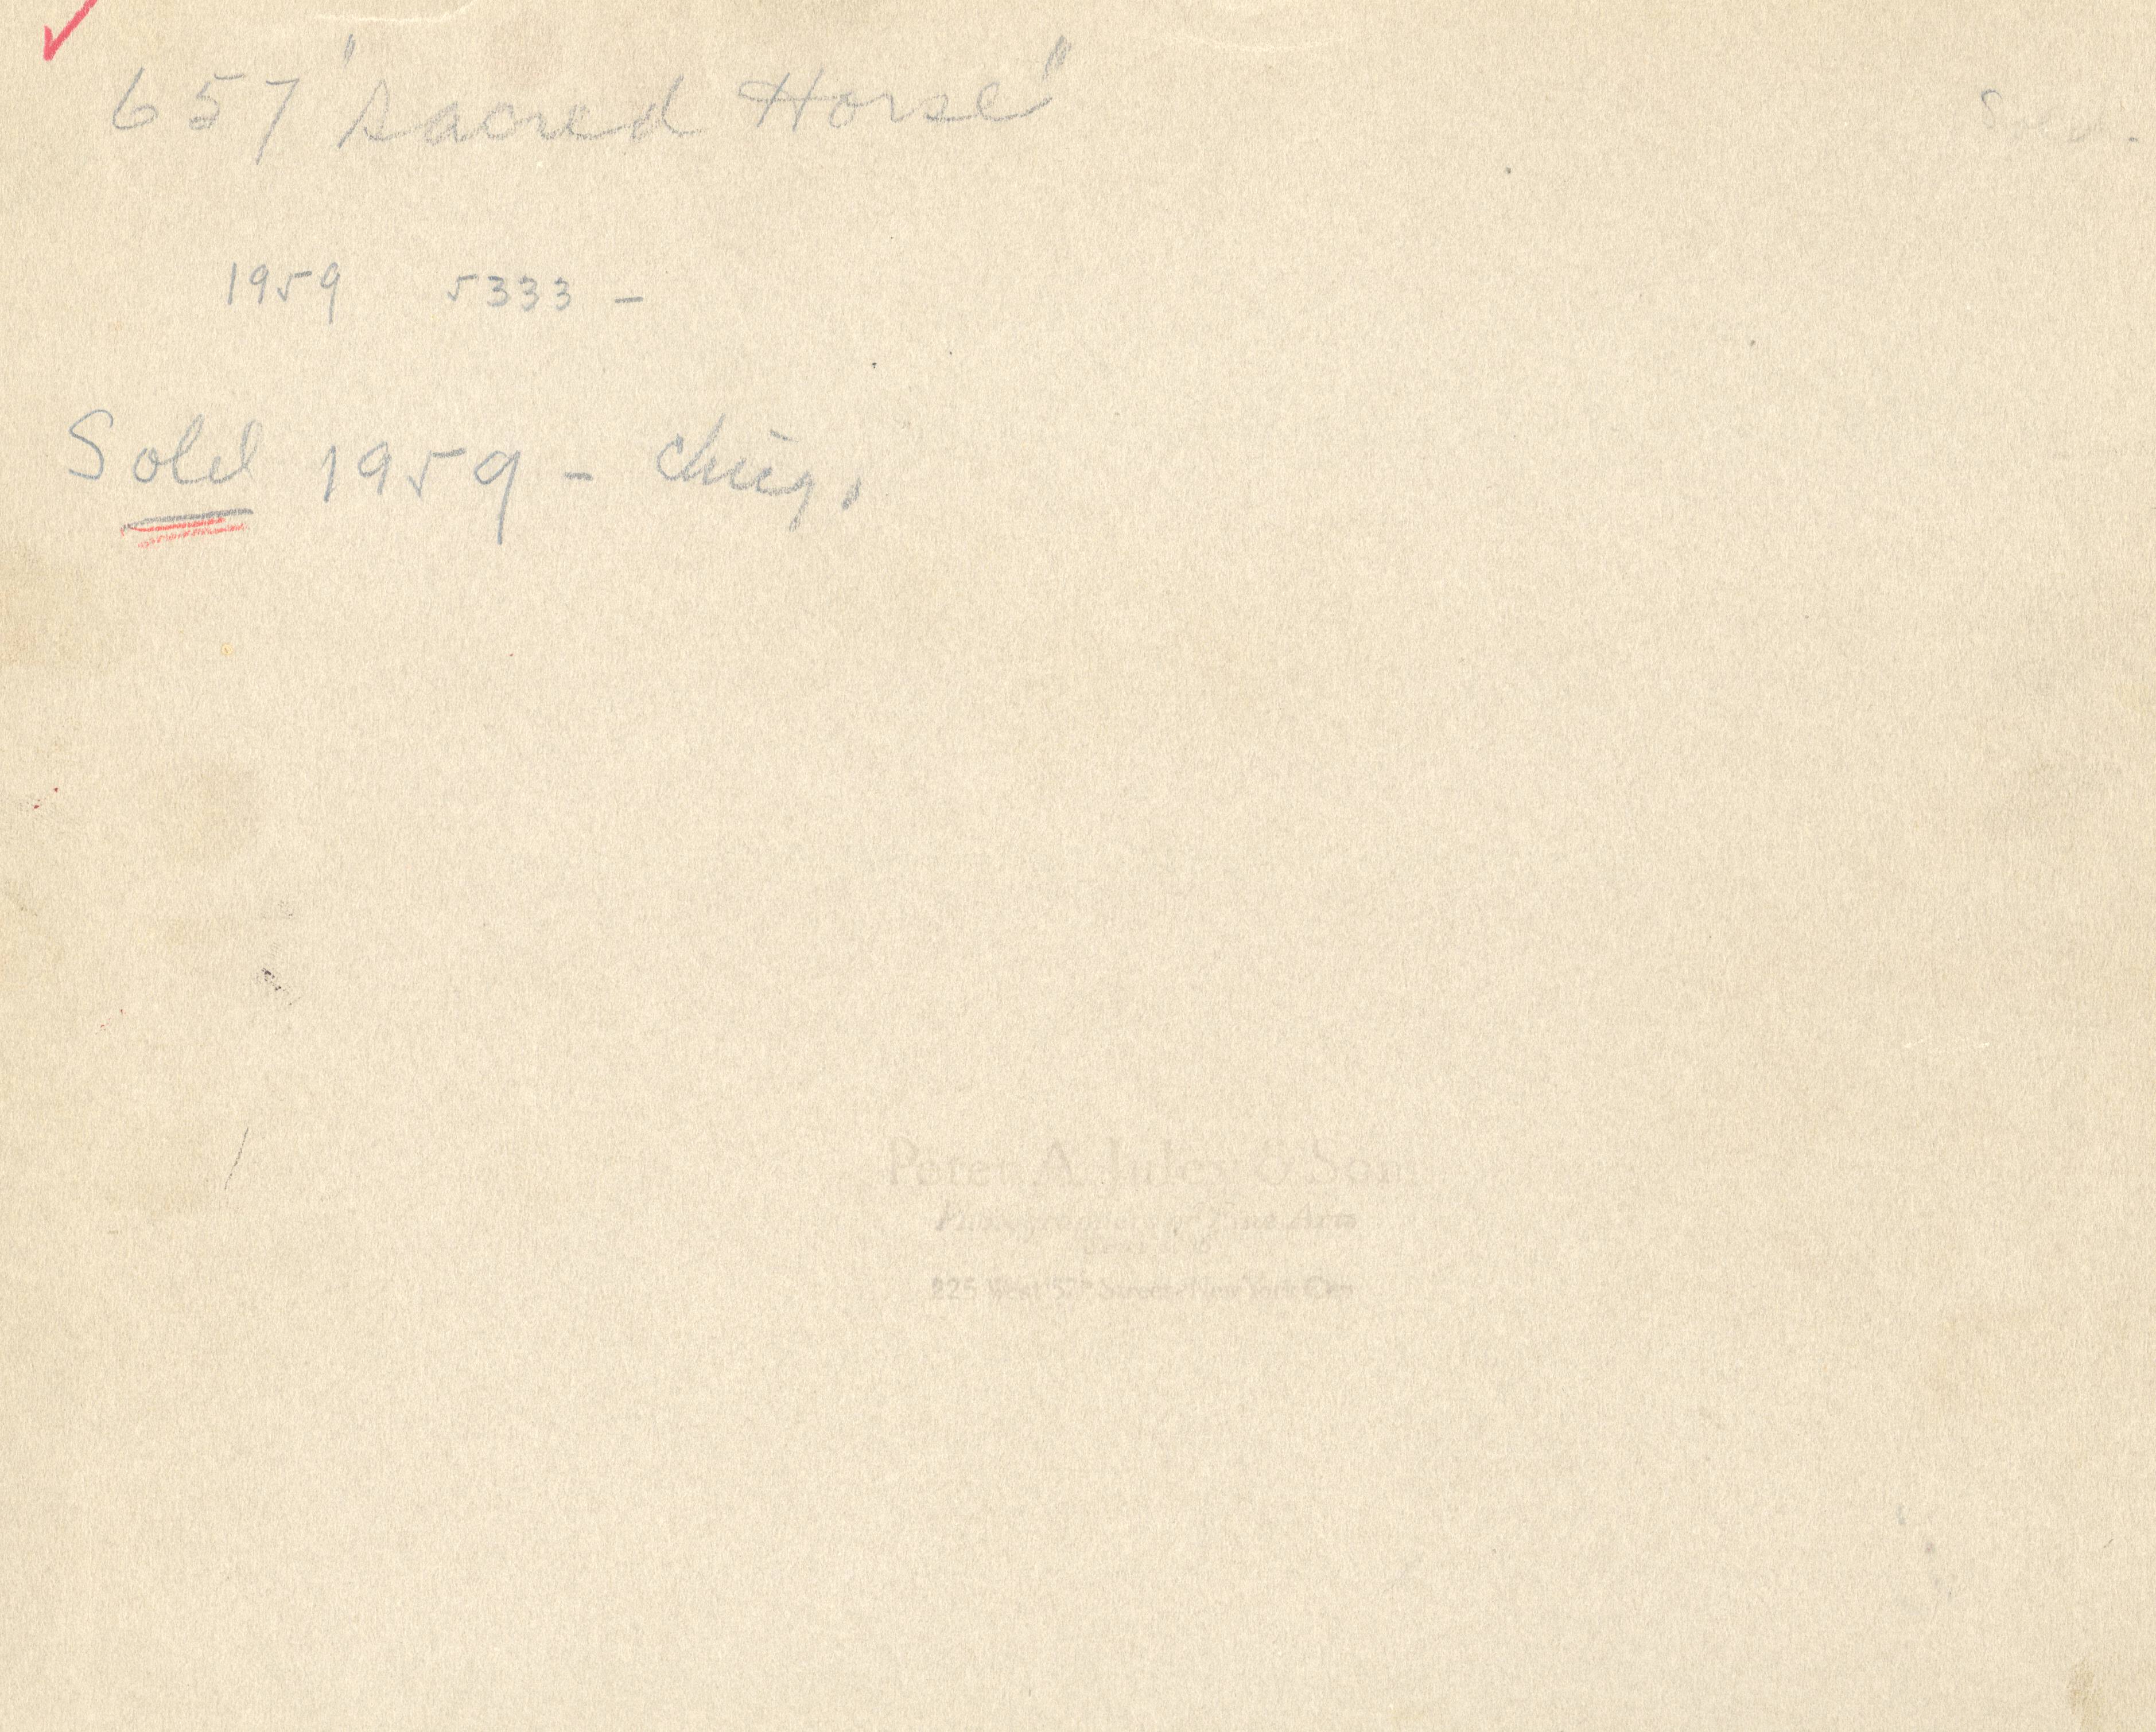 657 "Sacred Horse"
1959 5333 -
Sold 1959 -
Peter A. Juley & Son
Photographers of Fine Arts
225 West 57th Street - New York City